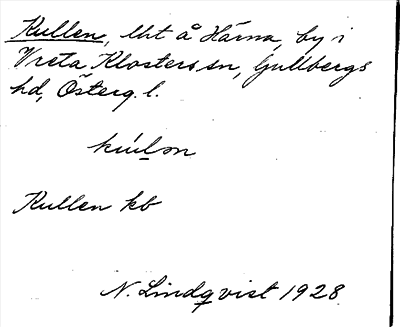 Kullen, lht å Härna, by i
Vreta Klosters sn, Gullbergs
hd, Österg. l.
Kullen kb
N. Lindqvist 1928